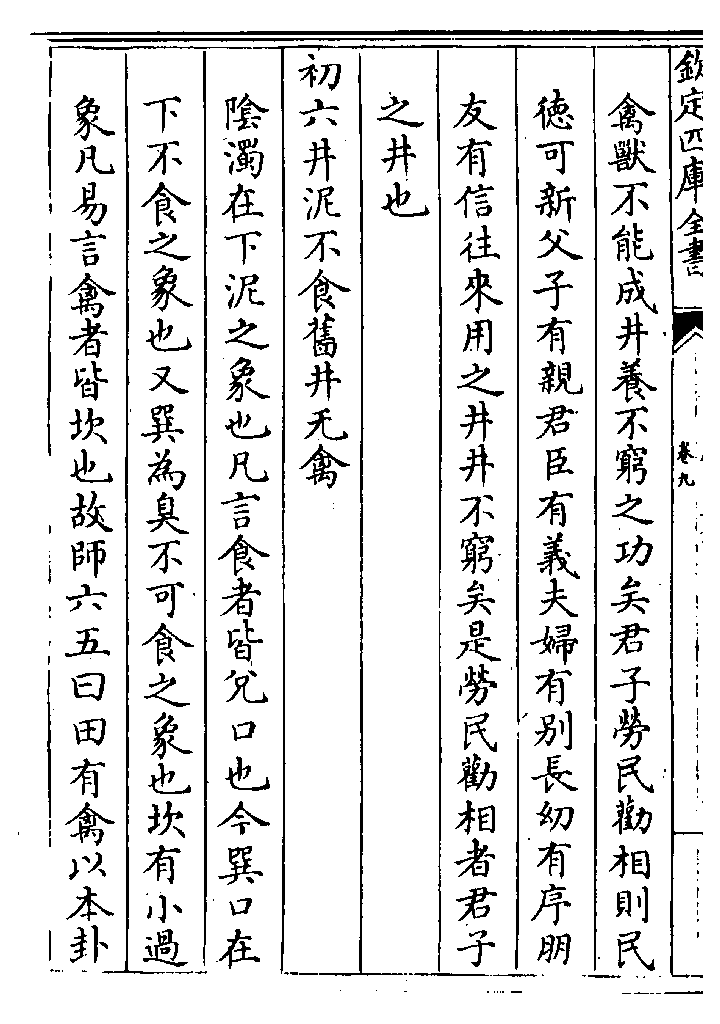 欽定四庫全書
卷九
禽獸不能成井養不窮之功矣君子勞民勸相則民
徳可新父子有親君臣有義夫婦有别長幼有序朋
友有信往來用之井井不窮矣是勞民勸相者君子
之井也
初六井泥不食舊井无禽
陰濁在下泥之象也凡言食者皆兊口也今巽口在
下不食之象也又巽為臭不可食之象也坎有小過
象凡易言禽者皆坎也故師六五曰田有禽以本卦